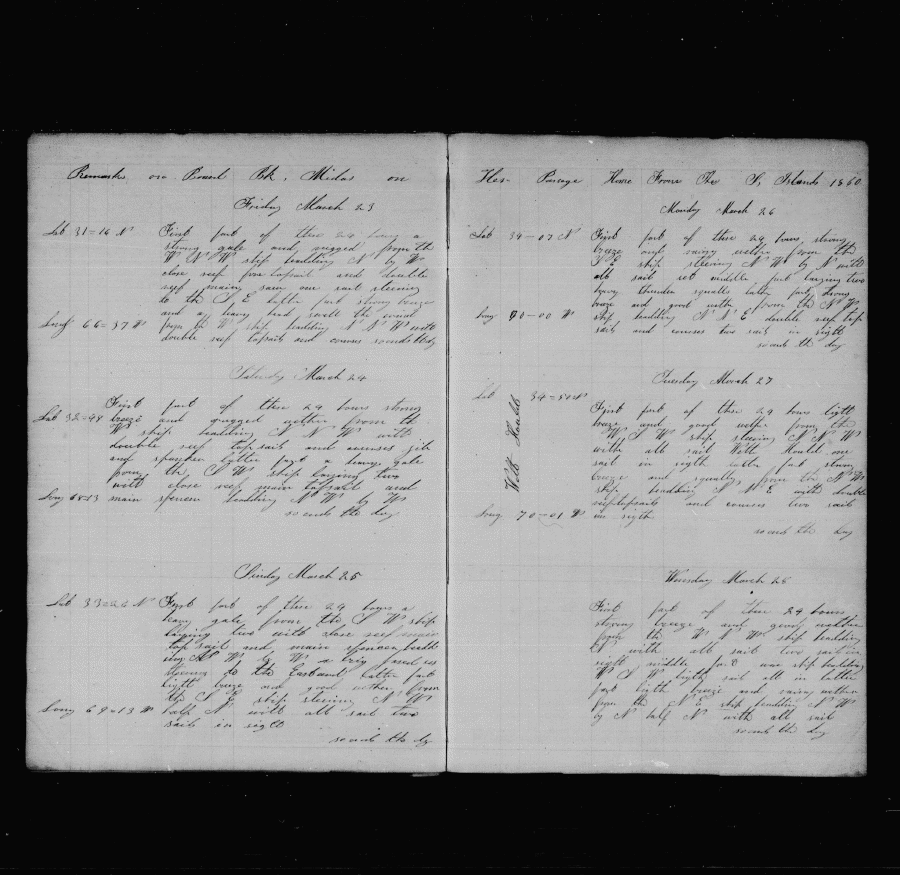 Remarks on Board Bk. Midas on
Friday March 23
Lat 31=16 N First part of these 24 hours a
strong gale and rugged from the
W N W ship heading N by W
close reef fore topsail and double
reef main sail steering
to the S E latter part strong breeze
and a heavy head swell the wind
Long 66=37 W from the W ship heading N N W with
double reef topsail and courses so ends the day
Saturday March 24
First part of these 24 hours strong
Lat 32=48 breeze and rugged wether from the
W ship heading N N W with
double reef topsail and courses jib
and spanker latter part a heavy gale
from the S W ship laying two
with close reef main topsail and
Long 68=13 main spencer heading N W by W
so ends the day
Sunday March 25
Lat 33=26 N First part of these 24 hours a
heavy gale from the S W ship
laying two with close reef main
top sail and main spencer
N W by W a brig
steering to the Eastward latter part
light breeze and good wether from
the S E ship steering N W
Long 69=13 W half N with all sail two
sails in sight
so ends the day
Her Passage Home From The S, Islands 1860
Monday March 26
Lat 34=07 N First part of these 24 hours strong
breeze and rainy wether from the
S E ship steering N W by N with
all sail set middle part laying two
heavy thunder squalls latter part strong
breeze and good wether from the N W
Long 70=00 W ship heading N N E double reef top
sail and courses two sail in sight
so ends the day
Tuesday March 27
Lat 34=51 N
First part of these 24 hours light
breeze and good wether from the
W S W ship steering N N W
with all sail one
sail in sigth latter part strong
breeze and squally from the N W
ship heading N E with double
reef topsail and courses two sail
Long 70=01 W in sigth
so ends the day
Wensday March 28
First part of these 24 hours
strong breeze and good wether
from the W N W ship heading
with all sail two sail in
sight middle part ship heading
W S W light sail all in latter
part ligth breeze and rainy wether
from the N E ship heading N W
by N half N with all sail
so ends the day